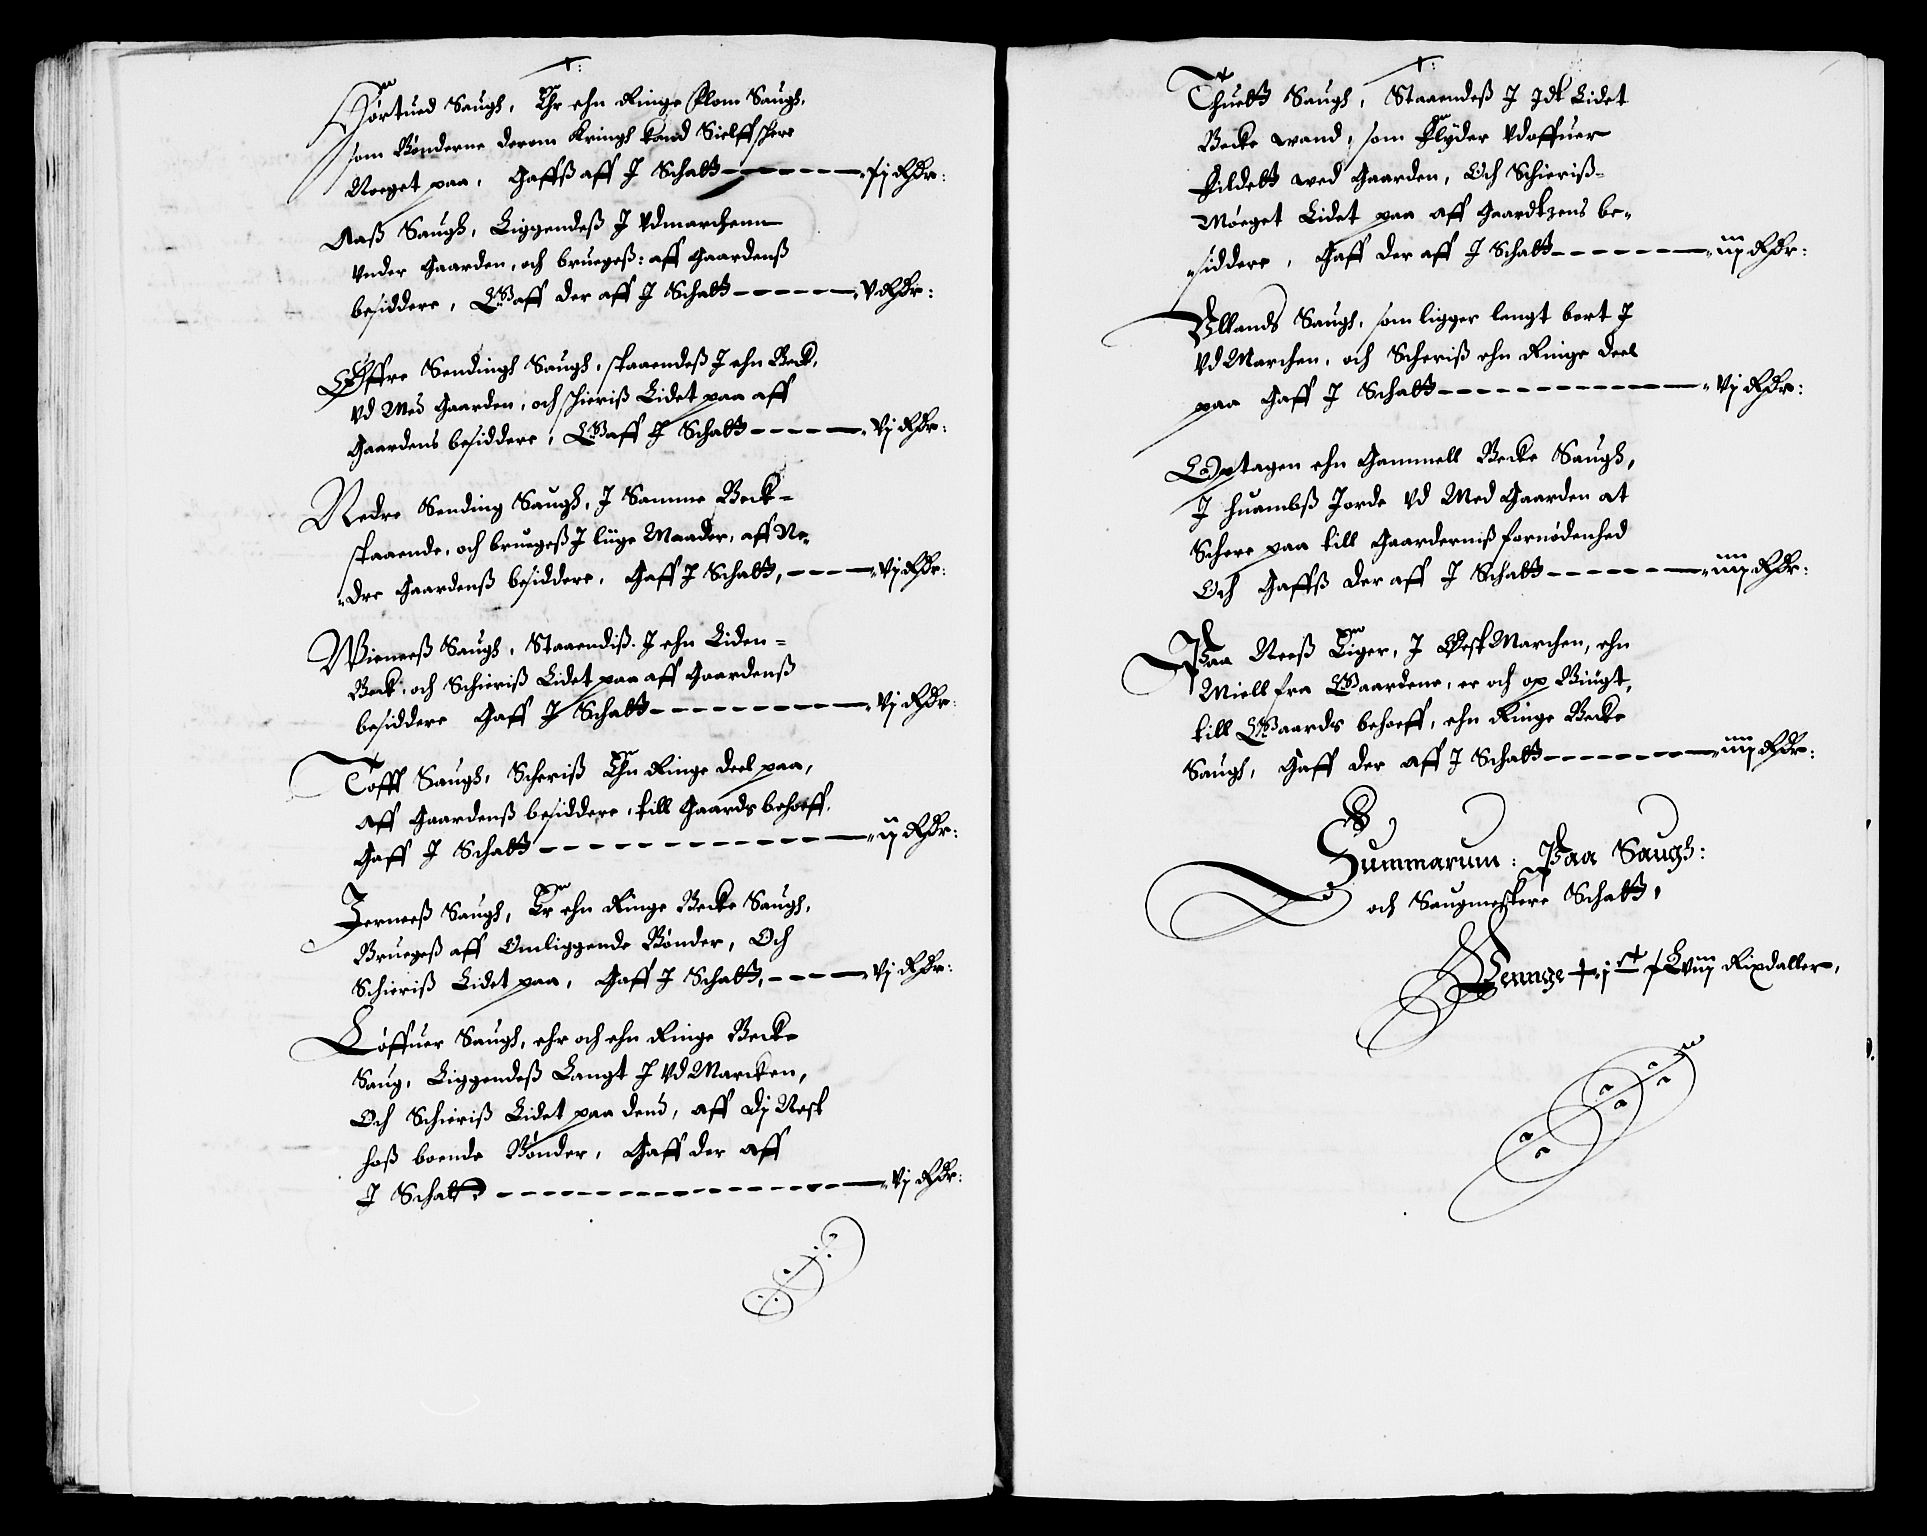 Hørtued Saugh, Ehr ehn Ringe flom Saugh,
som Bønderne derom kringh kand Sielff schere
Noeget paa, Gaffß aff J Schatt — ßj Rdr:
Aaß Saugh, Liggendeß J Vdmarchenn
vnder Gaarden, och bruegeß: aff Gaardenß
besiddere, Gaff der aff J Schatt — V Rdr:
Øffre Sendingh Saugh, staaendeß J ehn Beck,
vd Med Gaarden, och schieriß Lidet paa aff
Gaardens besiddere, Gaff J Schatt — Vj Rdr:
Nedre Sending Saugh, J Samme Beck-
staaende, och bruegeß J liige Maader, aff Ne-
dre Gaardenß besiddere, Gaff J Schatt, — Vj Rdr:
Wieneeß Saugh, Staaendiß J ehn Liden-
Beck, och Schieriß Lidet paa aff Gaardenß
besiddere Gaff J Schatt — Vj Rdr:
Tofft Saugh, Scheriß Ehn Ringe deel paa,
Aff Gaardenß besiddere, till Gaards behoeff,
Gaff J Schatt — ij Rdr:
Jerneeß Saugh, Er ehn Ringe Becke Saugh,
Bruegeß aff Omliggende Bønder, Och
Schieriß Lidet paa, Gaff J Schatt, — Vj Rdr:
Løffuer Saugh, ehr och ehn Ringe Becke
Saug, Liggendeß Langt J Vd Marcken,
Och Schieriß Lidet paa dend, aff dj Nest
hoß boende Bønder, Gaff der aff
J Schatt — Vj Rdr:
Thuett Saugh, Staaendeß J Jdt Lidet
Becke wand, som flyder vdoffuer
fieldett wed Gaarden, Och Schieriß-
Møeget Lidet paa aff Gaardtzens be-
siddere, Gaff der aff J Schatt — iij Rdr:
Ullands Saugh, som ligger langt bort J
Vd Marchen, och Scheriß ehn Ringe deel
paa Gaff J Schatt — Vj Rdr:
Optagen ehn Gammell Becke Saugh,
J huambß Jorde vd Med Gaarden at
Schere paa till Gaarderniß fornødenhed
Och Gaffß der aff J Schatt — iiij Rdr:
Paa Neeß Liger, J Vest Marchen, ehn
Miell fra Gaardene, er och op Biugt,
till Gaards behoeff, ehn Ringe Becke
Saugh, Gaff der aff J Schatt — iiij Rdr:
Summarum: Paa Saugh:
och Saugmestere Schatt,
Pennge j Rixdaller,